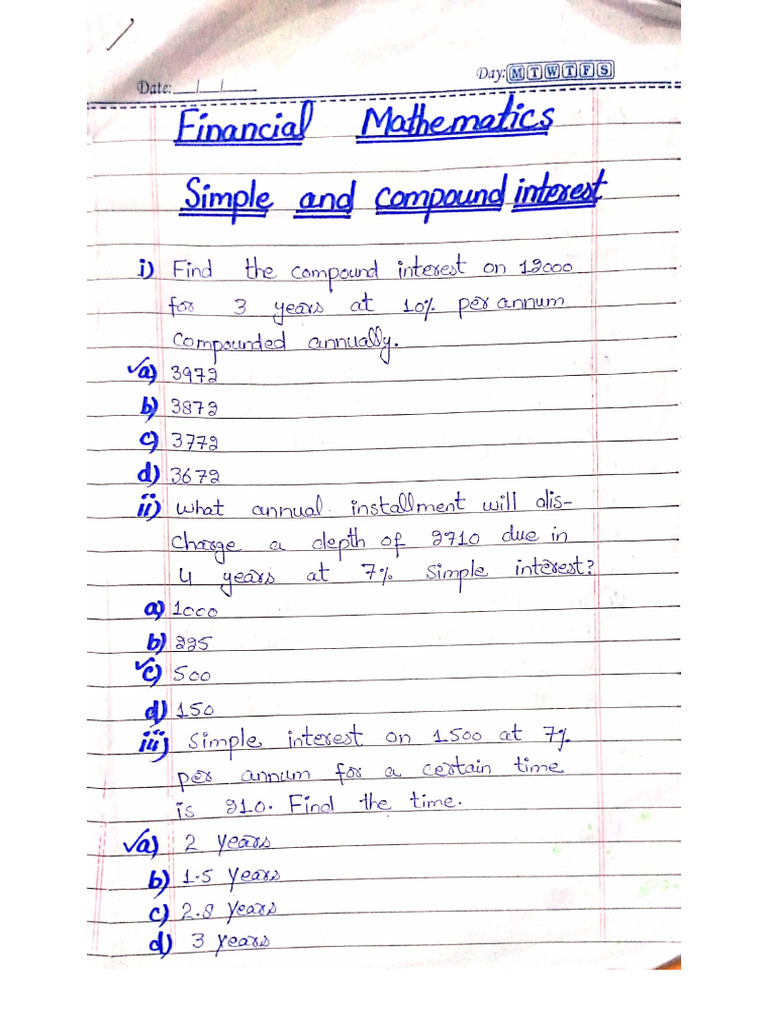 Date: __/__/____
Day: M T W T F S
Financial Mathematics
Simple and compound interest
i) Find the compound interest on 12000
for 3 years at 10% per annum
compounded annually.
✓a) 3972
b) 3872
c) 3772
d) 3672
ii) what annual installment will dis-
charge a depth of 2710 due in
4 years at 7% simple interest?
a) 1000
b) 225
✓c) 500
d) 150
iii) Simple interest on 1500 at 7%
per annum for a certain time
is 210. Find the time.
✓a) 2 years
b) 1.5 years
c) 2.8 years
d) 3 years